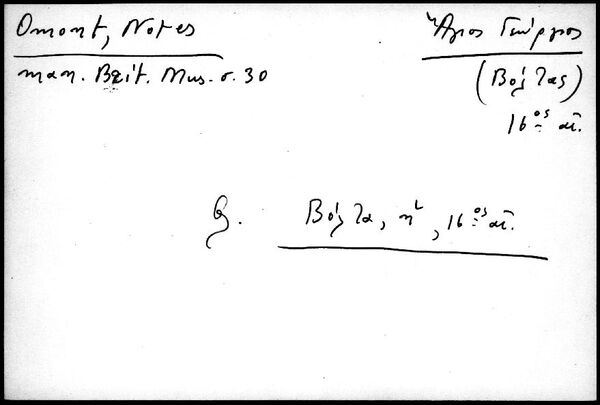 Omont, Notes
man. Brit. Mus. σ. 30
Ἅγιος Γεώργιος
(Βόλτας)
16ος αἰ.
Βόλτα, 16ος αἰ.